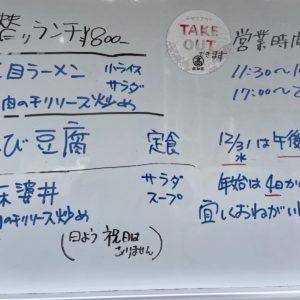 替りランチ¥800-
目ラーメン 小ライス
サラダ
肉のチリソース炒め
び豆腐 定食
婆丼 サラダ
スープ
のチリソース炒め
(日よう 祝日は
ありません)
TAKE
OUT
できます
営業時間
11:30〜
17:00〜
12/31は午後
水
年始は4日か
宜しくおねがい